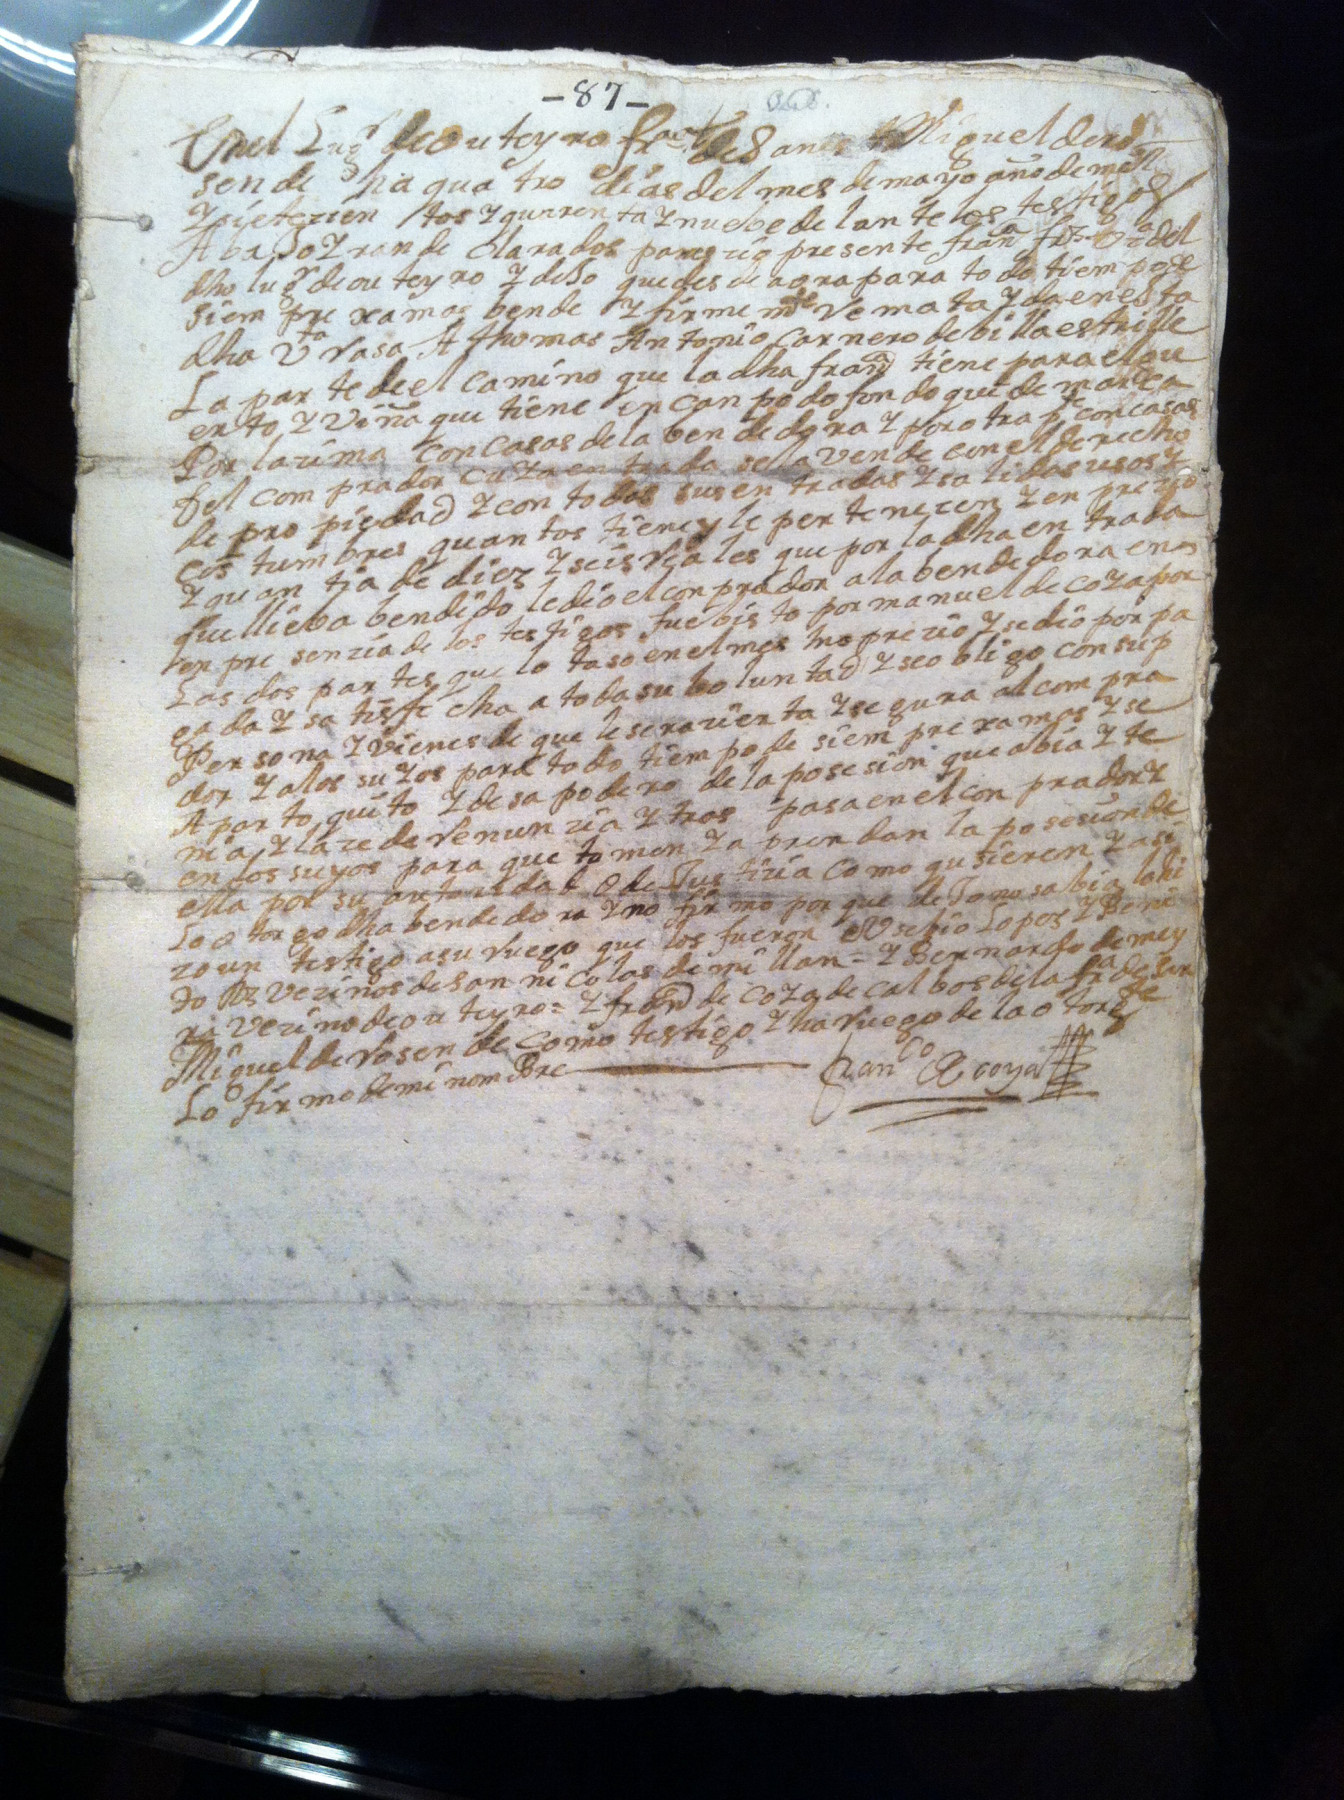 -87-
En el Lugr de outeyro fra de San Miguel de ro
sende ha quatro dias del mes de mayo año de mill
y sietezien tos y quarenta y nuebe delante los testigos
Abajo y ran de clarados parezio presente fran frz vza del
dho lugr de outeyro y dijo que des de aora para todo tiempo de
siempre xamas bende y firme mte Remata y da en esta
dha vta rasa A thomas Antonio Carnero de billaestrille
La parte de el camino que la dha frana tiene para el gu
erto y viña que tiene en can po do fondo que de marca
Por la zima con casas de la bendedora y por otra pte con casas
del com prador cuya entrada se la vende con el derecho
de pro piedad y con todas sus en tradas y salidas usos y
cos tumbres quantos tiene y le per tenezen y en prezio
y quan tia de diez y seis Rs ales que por la dha en trada
que llieba bendido le dio el conprador a la bendedora en
en pre senzia de los testigos fue bis to por manuel de coya por
Las dos partes que lo taso en el mes mo prezio y se dio por pa
gada y sa tisfe cha a toda su bo luntad y se obligo con su p
Persona y vienes de que le sera zierta y segura al com pra
dor y a los suyos para todo tiempo de siem pre xamas y se
Aparto quito y desa podero de la posesion que abia y te
nia y la ze de renun zia y tras pasa en el con prador y
en los suyos para que tomen y a prendan la posesion de
ella por su autoridad o de Jus tizia como qusieren y asi
Lo o torgo dha bendedora y no firmo por que dijo no sabia lo hi
zo un testigo a su ruego que los fueron eusebio Lopez y Beni
to Rz vezinos de san nicolas de millan = y Bernardo de mey
ra vezino de outeyro = y fran de coya de calbos de la fra de san
Miguel de rosende como testigo y ha ruego de la otorgte
Lo firmo de mi nombre
Franco Acoya